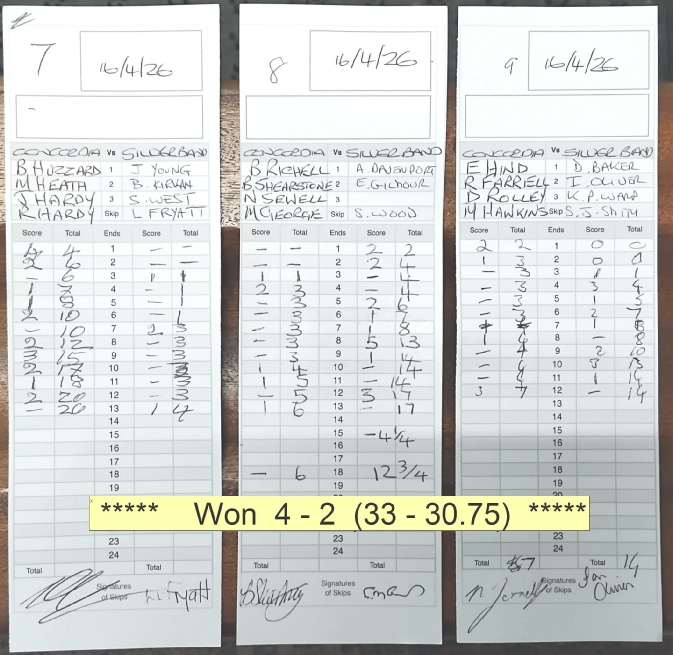 7
16/4/26
CONCORDIA Vs SILVER BAND
B HUZZARD 1 J YOUNG
M HEATH 2 B. KIRVAN
J HARDY 3 S. WEST
R HARDY Skip L FRYATT
Score Total Ends Score Total
4 4 1 - -
2 6 2 - -
- 6 3 1 1
1 7 4 - 1
1 8 5 - 1
2 10 6 - 1
- 10 7 2 3
2 12 8 - 3
3 15 9 - 3
2 17 10 - 3
1 18 11 - 3
2 20 12 - 3
- 20 13 1 4
14
15
16
17
18
19
23
24
Total Total
Signatures
of Skips
L Fryatt
8
16/4/26
CONCORDIA Vs SILVER BAND
B RICHELL 1 A. DAVENPORT
B SHEARSTONE 2 E. GILHOUR
N SEWELL 3
M GEORGIE Skip S. WOOD
Score Total Ends Score Total
- - 1 2 2
- - 2 2 4
1 1 3 - 4
2 3 4 - 4
- 3 5 2 6
- 3 6 1 7
- 3 7 1 8
- 3 8 5 13
- 3 9 1 14
1 4 10 - 14
1 5 11 - 14
- 5 12 3 17
1 6 13 - 17
14
15 -4 1/4
16
17
- 6 18 12 3/4
19
23
24
Total Total
Signatures
of Skips
9
16/4/26
CONCORDIA Vs SILVER BAND
E HIND 1 D. BAKER
R FARRIELL 2 I. OLIVER
D ROLLEY 3 K. P. WARD
M HAWKINS Skip S. J. SMITH
Score Total Ends Score Total
2 2 1 0 0
1 3 2 0 0
- 3 3 1 1
- 3 4 3 4
- 3 5 1 5
- 3 6 2 7
7 1 8
1 4 8 - 8
- 4 9 2 10
- 4 10 3 13
- 4 11 1 14
3 7 12 - 14
13
14
15
16
17
18
19
20
23
24
Total 7 Total 14
Signatures
of Skips
Ian
Oliver
***** Won 4 - 2 (33 - 30.75) *****